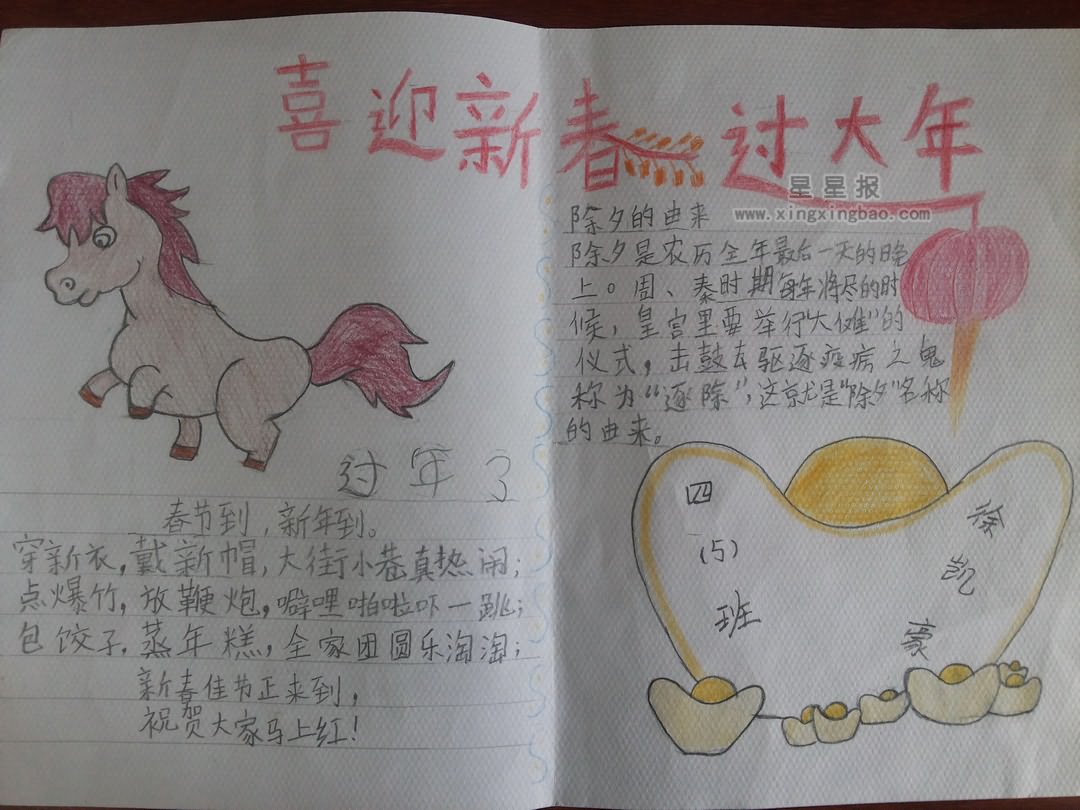 喜迎新春 过大年
星星报
www.xingxingbao.com
过年了
春节到，新年到。
穿新衣，戴新帽，大街小巷真热闹；
点爆竹，放鞭炮，噼哩啪啦吓一跳；
包饺子，蒸年糕，全家团圆乐淘淘；
新春佳节正来到，
祝贺大家马上红！
除夕的由来
除夕是农历全年最后一天的晚
上。周、秦时期每年将尽的时
候，皇宫里要举行“大傩”的
仪式，击鼓去驱逐疫病之鬼
称为“逐除”，这就是“除夕”名称
的由来。
四（5）班
徐凯豪